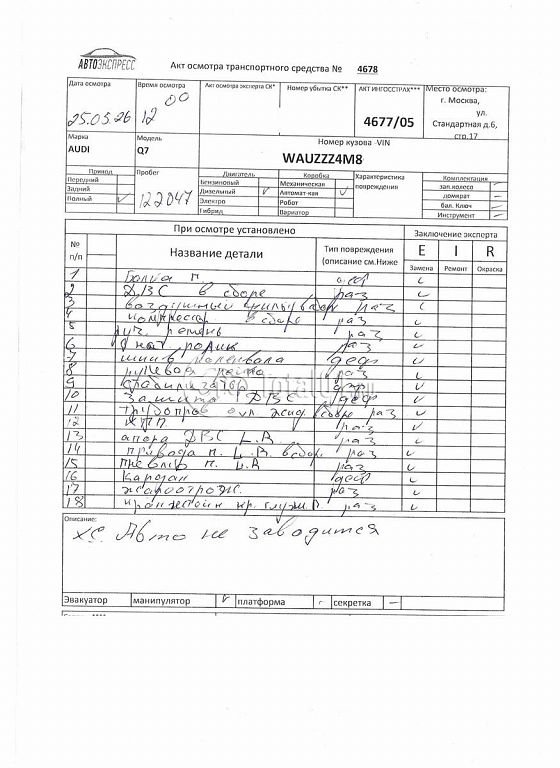 АВТОЭКСПРЕСС
Акт осмотра транспортного средства № 4678
Дата осмотра
Время осмотра
Акт осмотра эксперта СК*
Номер убытка СК**
АКТ ИНГОССТРАХ***
Место осмотра:
25.05.26
12 00
4677/05
г. Москва,
ул.
Стандартная д.6,
стр.17
Марка
Модель
Номер кузова -VIN
AUDI
Q7
WAUZZZ4M8
Привод
Пробег
Двигатель
Коробка
Характеристика повреждения
Комплектация
Передний
Бензиновый
Механическая
зап.колесо –
Задний
Дизельный ✓
Автомат-кая ✓
домкрат –
Полный ✓
122047
Электро
Робот
бал. Ключ –
Гибрид
Вариатор
Инструмент –
При осмотре установлено
Заключение эксперта
№ п/п
Название детали
Тип повреждения (описание см.Ниже
E I R
Замена Ремонт Окраска
1 Балка п деф ✓
2 ДВС в сборе раз ✓
3 воздушный раз
4 компрессор в сборе раз ✓
5 руч. ремень раз ✓
6 нат ролик раз ✓
7 шкив коленвала деф ✓
8 рулевая рейка раз ✓
9 стабилизатор деф ✓
10 Защита ДВС деф ✓
11 трубопров охл. жид в сборе раз ✓
12 КПП раз ✓
13 опора ДВС L.R раз ✓
14 привода п. L.R в сбор. раз ✓
15 п. L.R раз ✓
16 Кардан деф ✓
17 раз ✓
18 кронштейн кр. глуш. п раз ✓
TotalC
Описание:
х/с. Авто не заводится
Эвакуатор
манипулятор ✓
платформа
секретка –